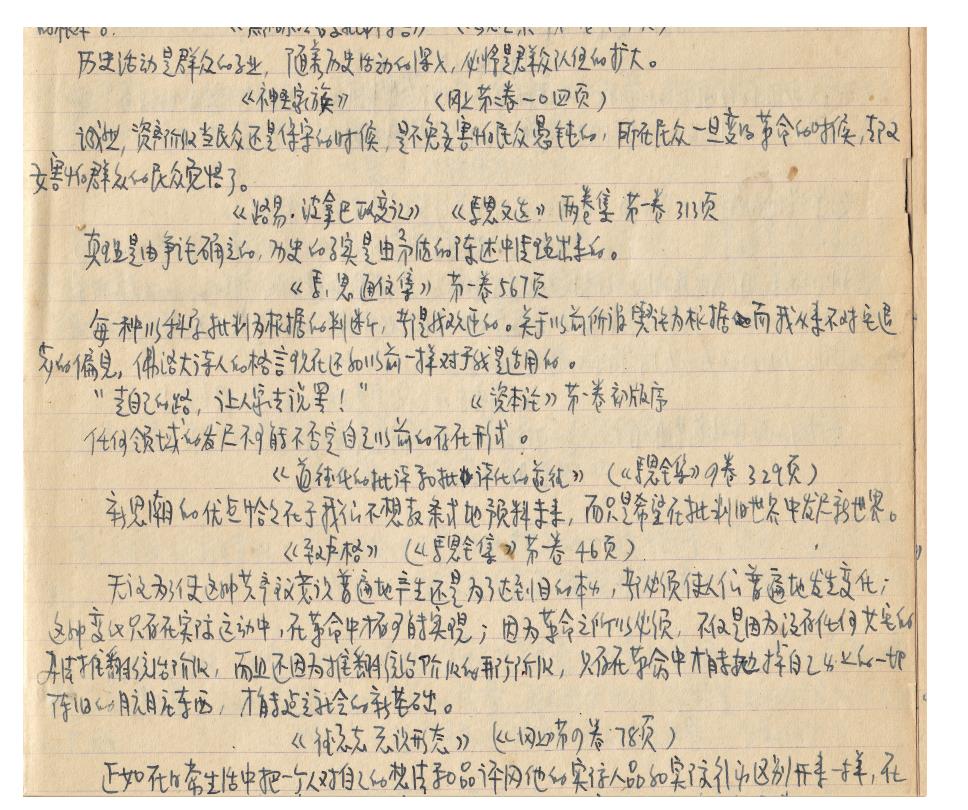 历史活动是群众的事业，随着历史活动的深入，必将是群众队伍的扩大。
《神圣家族》 （同上第二卷一〇四页）
资产阶级当民众还是保守的时候，是不免要害怕民众愚钝的，而在民众一旦变得革命的时候，却又
要害怕群众的民众觉悟了。
《路易·波拿巴政变记》 《马恩文选》两卷集 第一卷 313页
真理是由争论确立的，历史的事实是由矛盾的陈述中清理出来的。
《马、恩通信集》第一卷567页
每一种以科学批判为根据的判断，都是我欢迎的。关于以前所谓舆论为根据 而我从来不对它退
步的偏见，佛洛大诗人的格言现在还如以前一样对于我是适用的。
“走自己的路，让人家去说罢！” 《资本论》第一卷初版序
任何领域的发展不可能不否定自己以前的存在形式。
《道德化的批评和批评化的道德》（《马恩全集》4卷329页）
新思潮的优点恰恰在于我们不想教条式地预料未来，而只是希望在批判旧世界中发展新世界。
《致卢格》（《马恩全集》第一卷 46页）
无论为了使这种共产主义意识普遍地产生还是为了达到目的本身，都必须使人们普遍地发生变化；
这种变化只有在实际运动中，在革命中才有可能实现；因为革命之所以必须，不仅是因为没有任何其它的
推翻统治阶级，而且还因为推翻统治阶级的那个阶级，只有在革命中才能抛掉自己身上的一切
陈旧的肮脏东西，才能建立社会的新基础。
《德意志意识形态》（《同上第 卷·78页）
正如在日常生活中把一个人对自己的想法和品评同他的实际人品和实际行为区别开来一样，在